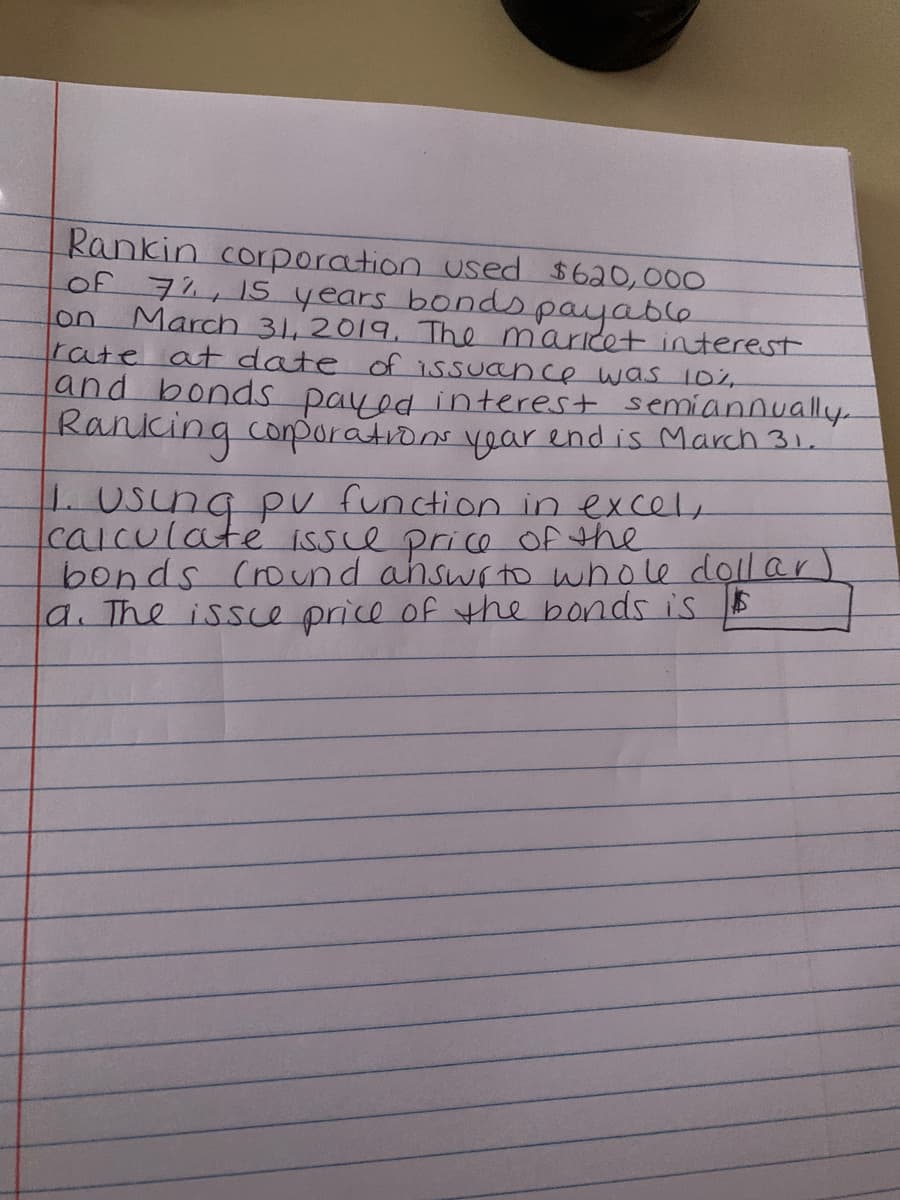 Rankin corporation used $620,000
of 7%, 15 years bonds payable
on March 31, 2019. The market interest
rate at date of issuance was 10%
and bonds payed interest semiannually.
Ranking corporations year end is March 31.
1. Using pv function in excel,
calculate issue price of the
bonds (round answr to whole dollar)
a. The issue price of the bonds is $